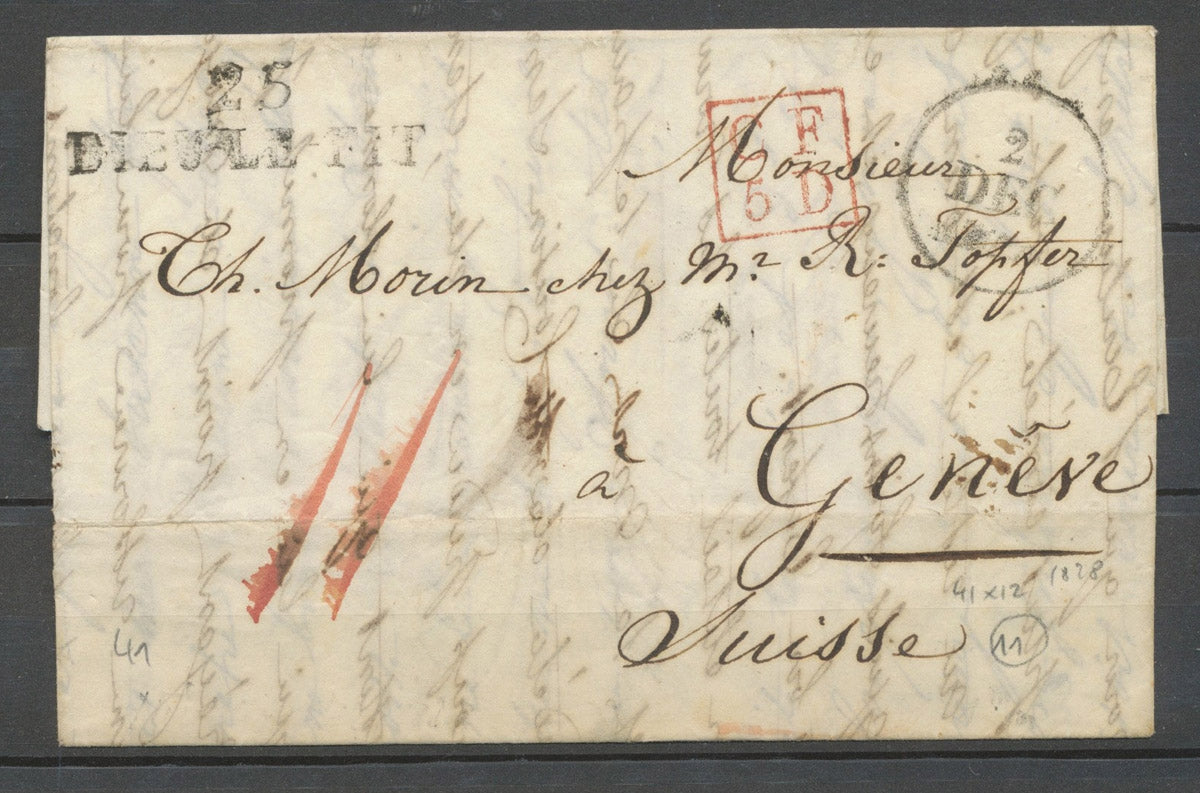 25
DIEU-LE-FIT
C F
5 D
2
DEC
Monsieur
Th. Morin chez Mr R: Topfer
à
Genève
Suisse
41 x 12 1828
11
41